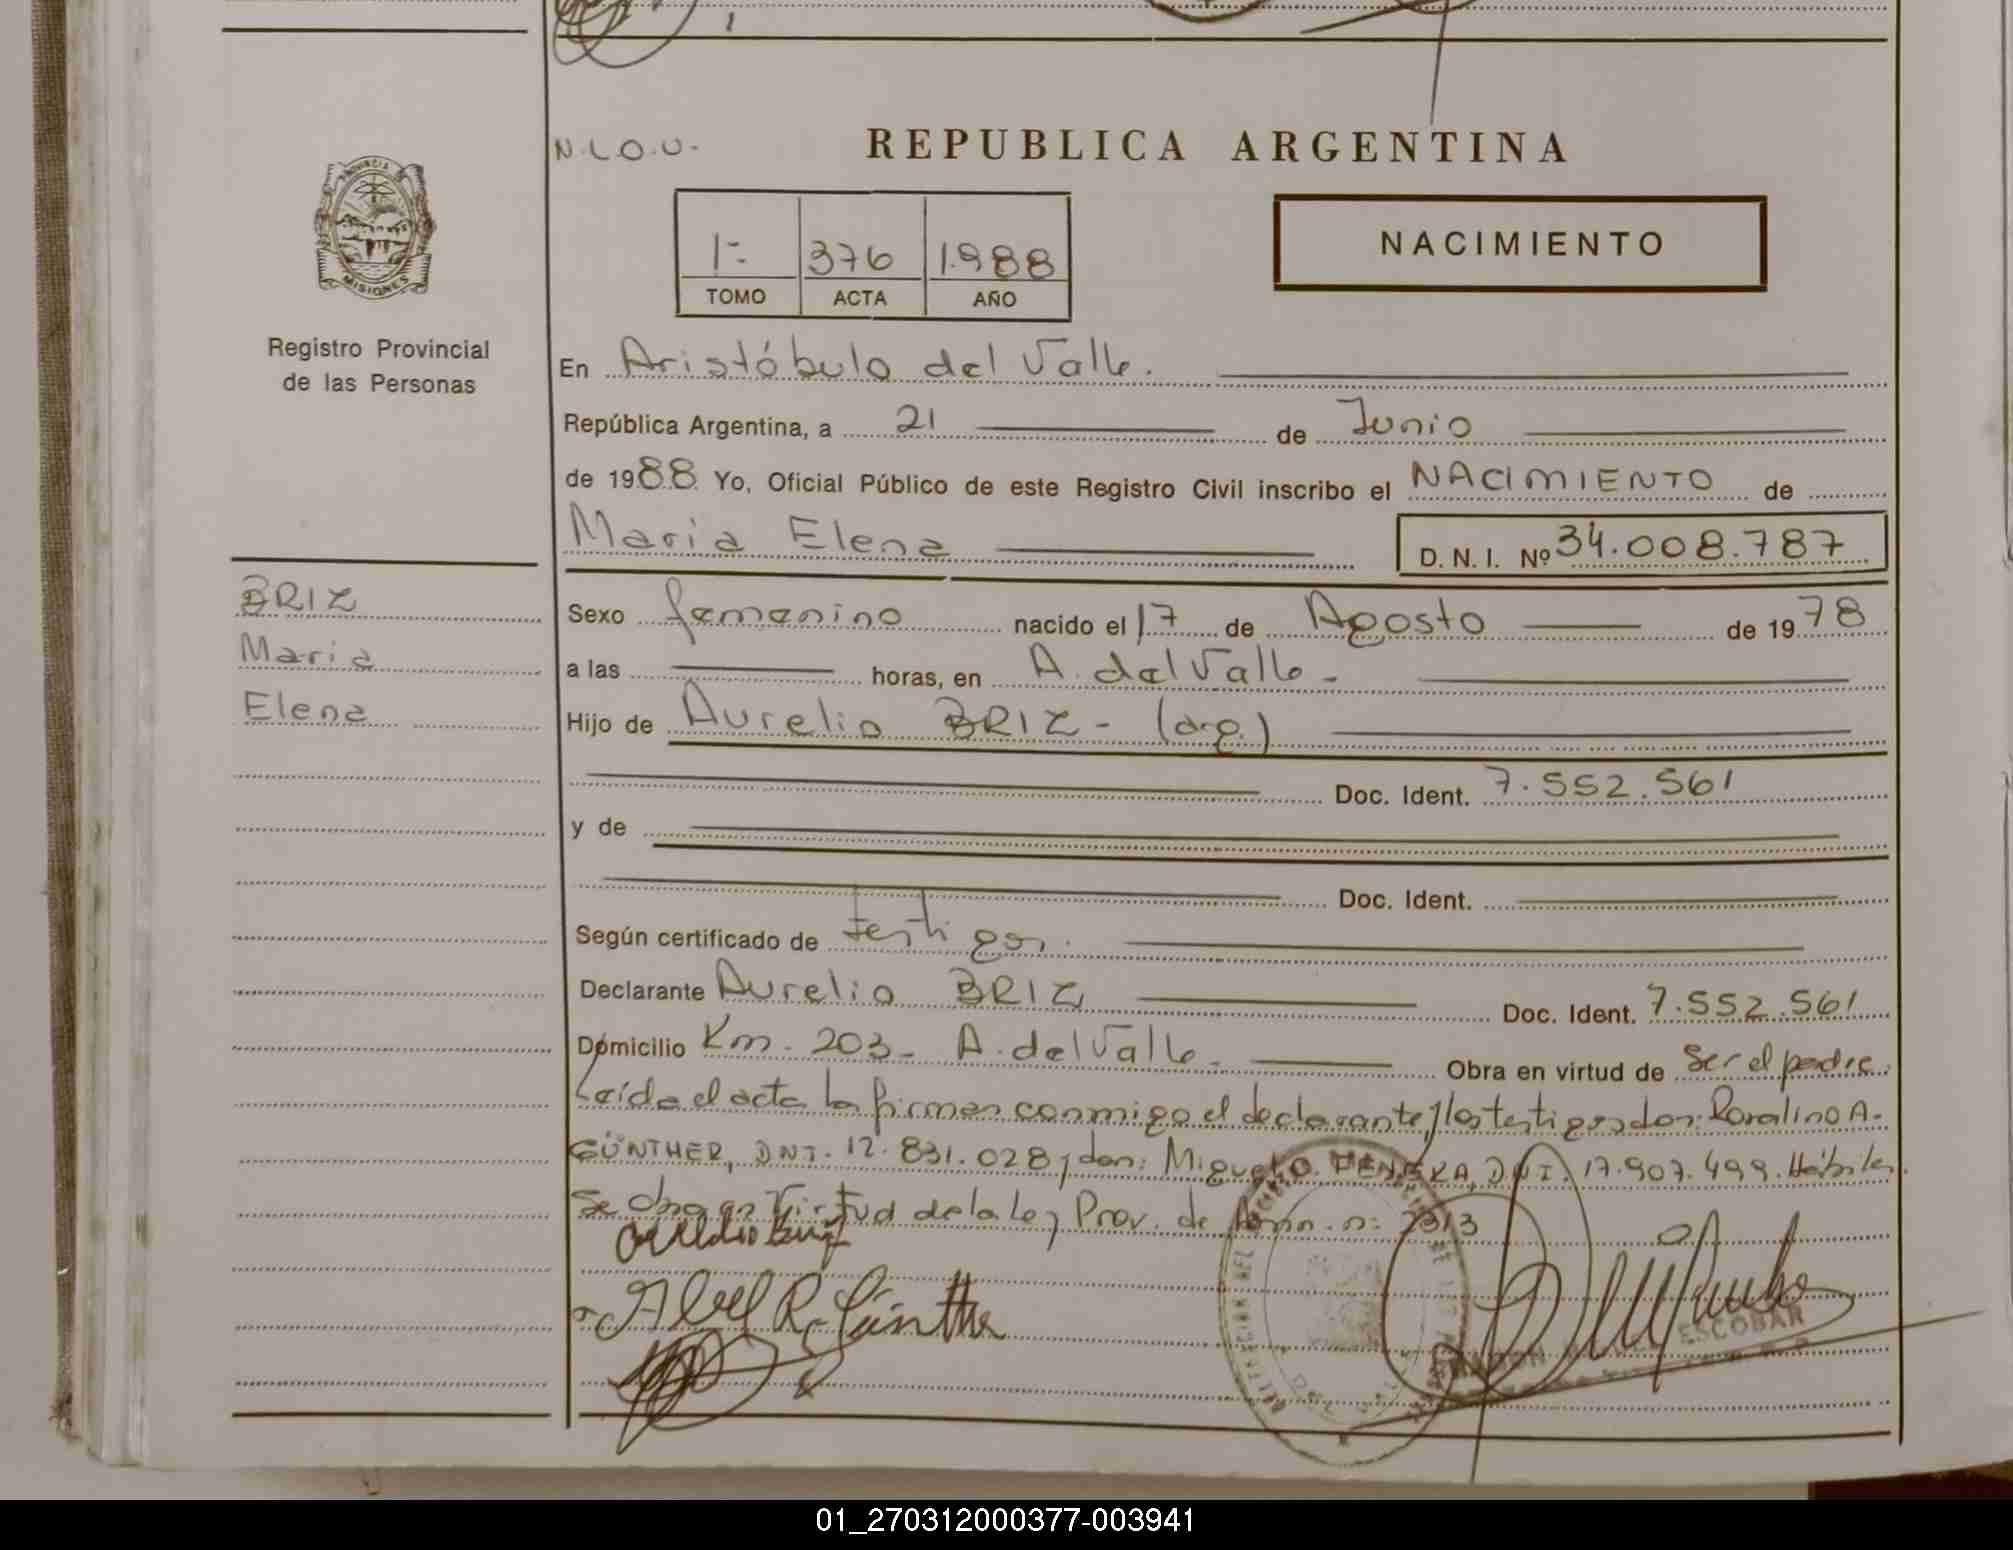 N.L.O.U.
REPUBLICA ARGENTINA
PROVINCIA
MISIONES
1-
376
1.988
TOMO
ACTA
AÑO
NACIMIENTO
Registro Provincial
de las Personas
En Aristóbulo del Valle.
República Argentina, a 21 de Junio
de 1988. Yo, Oficial Público de este Registro Civil inscribo el NACIMIENTO de
Maria Elena D. N. I. Nº 34.008.787
BRIZ
Maria
Elena
Sexo femenino nacido el 17 de Agosto de 1978
a las horas, en A. del Valle-
Hijo de Aurelio BRIZ - (arg.)
Doc. Ident. 7.552.561
y de
Doc. Ident.
Según certificado de testigos.
Declarante Aurelio BRIZ Doc. Ident. 7.552.561
Domicilio Km. 203- A. del Valle- Obra en virtud de ser el padre.
Leída el acta la firman conmigo el declarante y los testigos don: Rosalino A.
GÜNTHER, DNI. 12.831.028 y don: Miguel O. DNI. 17.907.499. Hábiles.
Se obra en Virtud de la Ley Prov. de n: 2313
Abel R. Günther
ESCOBAR
01_270312000377-003941